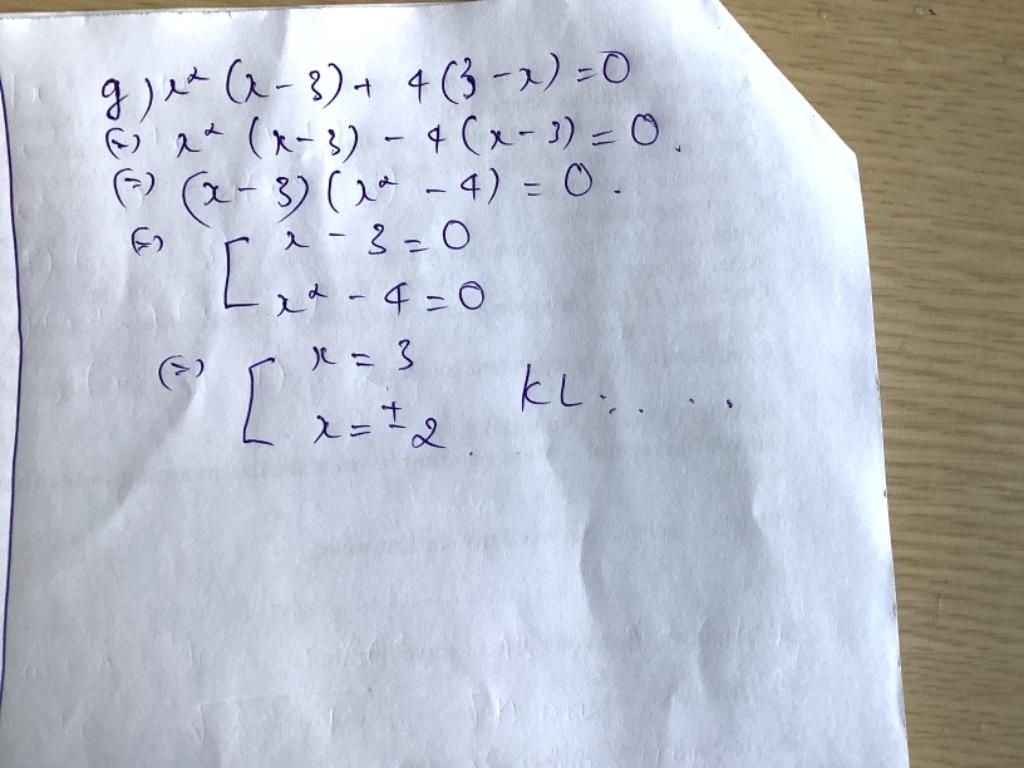 g) x² (x - 3) + 4 (3 - x) = 0
(=) x² (x - 3) - 4 (x - 3) = 0.
(=) (x - 3) (x² - 4) = 0.
(=) [ x - 3 = 0
x² - 4 = 0
(=) [ x = 3
x = ± 2
KL : . . .